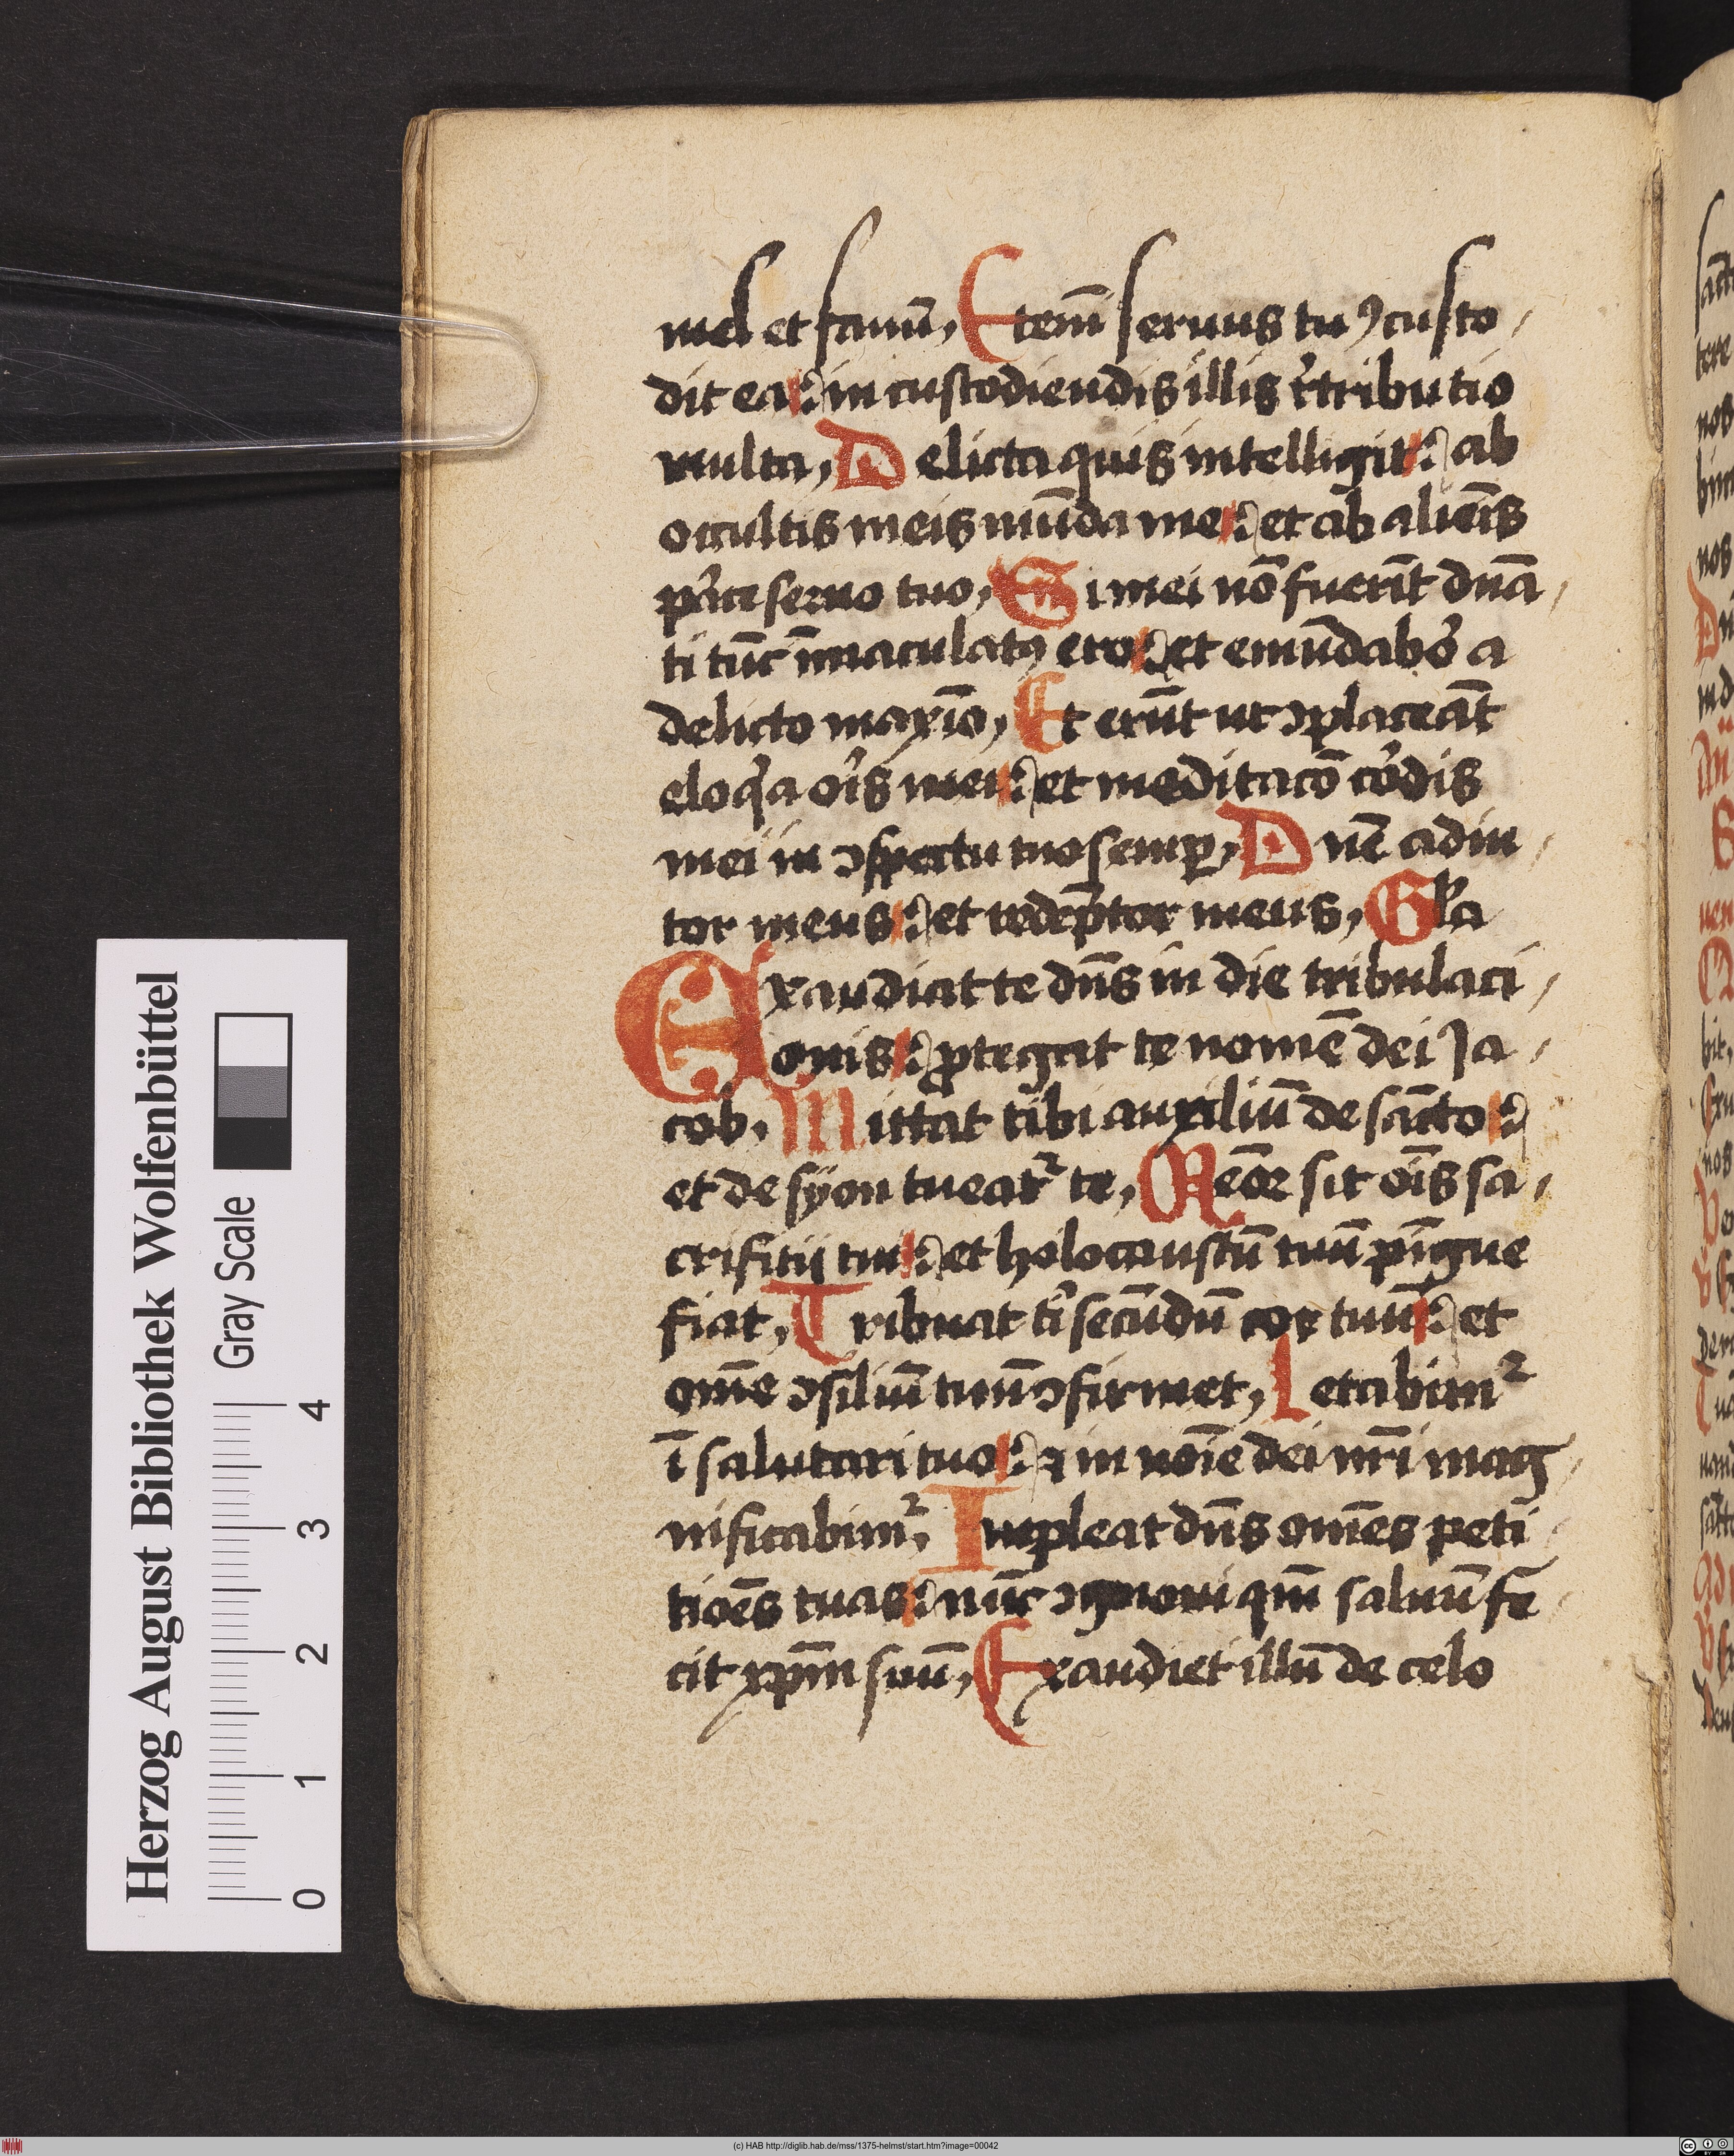 mel et fauū, Etem̄ seruus tuꝯ custo,
dit ea: in custodiendis illis r̓tributio
multa, Delicta quis intelligit: ab
occultis meis mūda me: et ab alieīs
p̓ce seruo tuo, Si mei nō fuerīt dnā,
ti tūc īmaculatꝯ ero: et emūdabo̓ a
delicto maxīo, Et erūt ut ꝯplaceāt
eloq̓a or̄is mei: et meditacō cordis
mei in ꝯspectu tuo semꝑ, Dn̄e adiu,
tor meus: et redēptor meus, Gl̓a
Exaudiat te dn̄s in die tribulaci,
onis: ꝓtegat te nomē dei Ja,
cob. Mittat tibi auxiliū de sāncto:
et de syon tueat᷑ te, Memor sit oīs sa,
crifitij tui: et holocaustū tuū pīgue
fiat, Tribuat ti̓ secūdū cor tuū: et
om̄e ꝯsiliū tuū ꝯfirmet, Letabim᷑
ī salutari tuo: ⁊ in noīe dei nr̄i mag,
nificabim᷑, Impleat dn̄s om̄es peti
tioēs tuas: nūc ꝯgnoui qm̄ saluū fe
cit xp̄m suū, Exaudiet illū de celo
Herzog August Bibliothek Wolfenbüttel
Gray Scale
0 1 2 3 4
(c) HAB http://diglib.hab.de/mss/1375-helmst/start.htm?image=00042